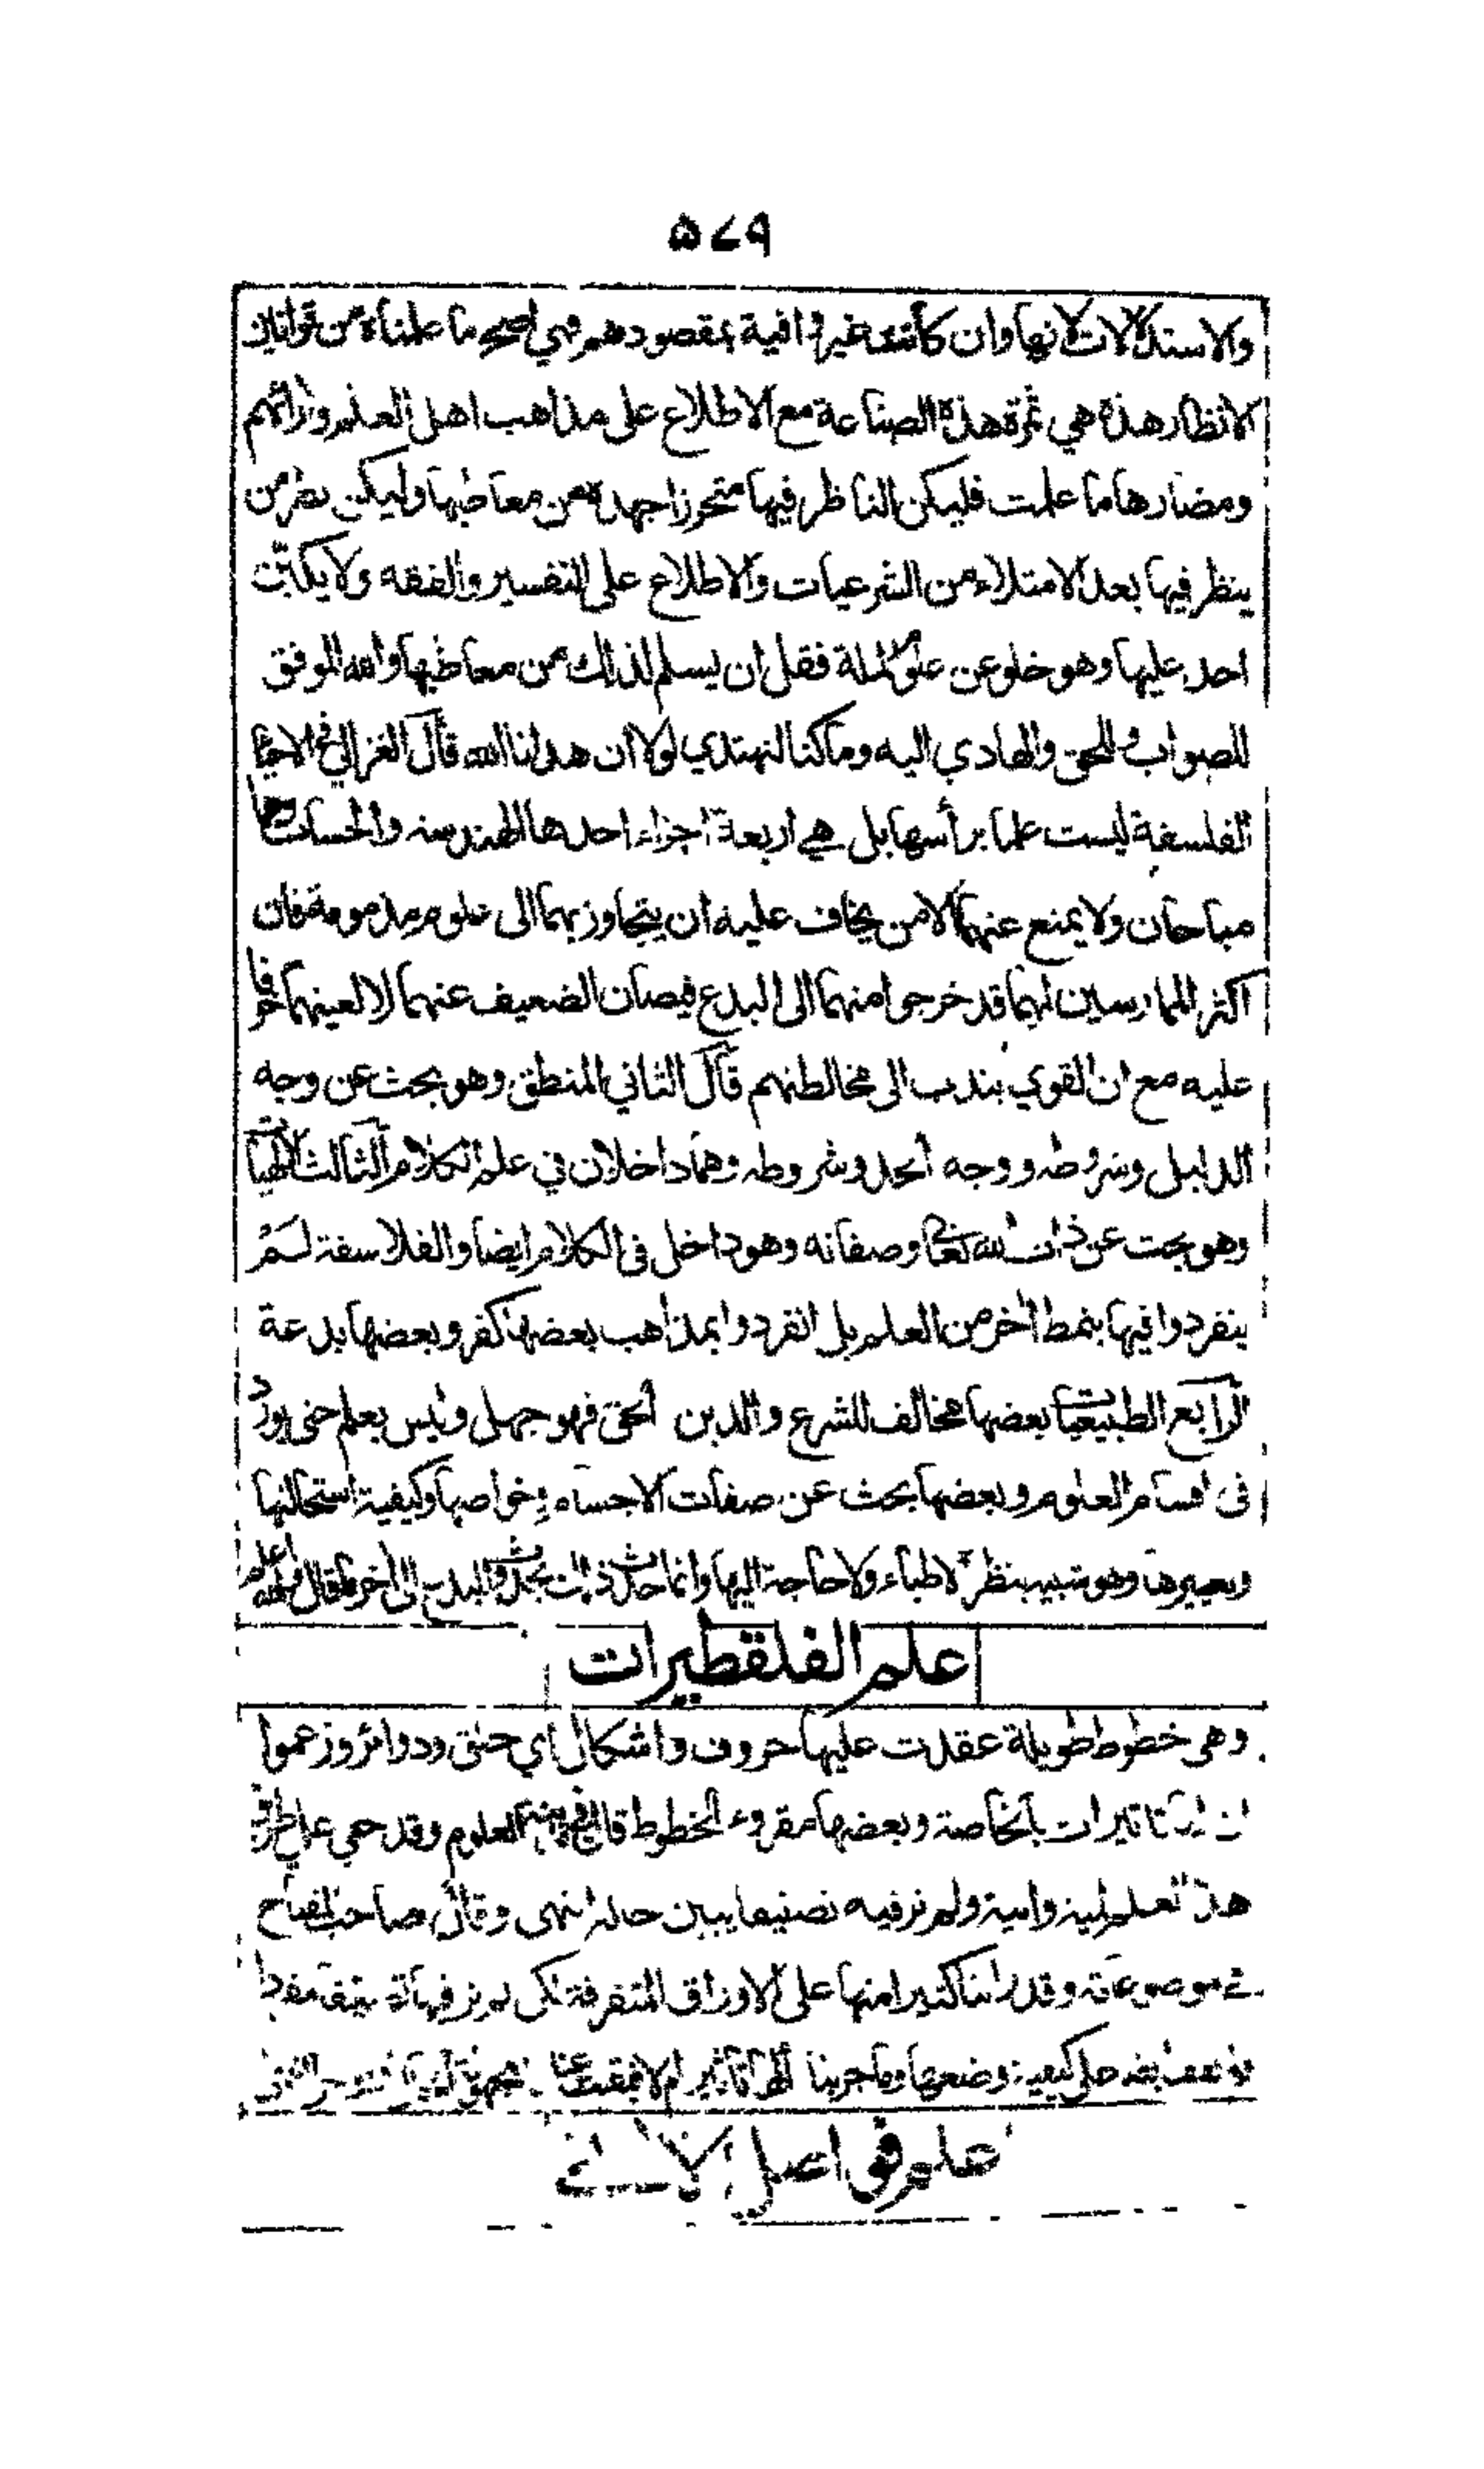 ۵۷۹
والاستدلالات لانها وان كانت غير وافية بمقصودهم فهي اصح ما علمناه من قوانين
الانظار هذه هي ثمرة هذه الصناعة مع الاطلاع على مذاهب اهل العلم وارائهم
ومضارها ما علمت فليكن الناظر فيها متحرزا جهده من معاطبها وليكن نظر من
ينظر فيها بعد الامتلاء من الشرعيات والاطلاع على التفسير والفقه ولا يكبّن
احد عليها وهو خلو عن علوم الملة فقل ان يسلم لذلك من معاطبها والله الموفق
للصواب وللحق والهادي اليه وما كنا لنهتدي لولا ان هدانا الله قال الغزالي في الاحياء
الفلسفة ليست علما برأسها بل هي اربعة اجزاء احدها الهندسة والحساب وهما
مباحان ولا يمنع عنهما الا من يخاف عليه ان يتجاوز بهما الى علوم مذمومة فان
اكثر الممارسين لهما قد خرجوا منهما الى البدع فيصان الضعيف عنهما لا لعينهما خوفا
عليه مع ان القوي يندب الى مخالطتهم قال الثاني المنطق وهو بحث عن وجه
الدليل وشروطه ووجه الحد وشروطه وهما داخلان في علم الكلام الثالث الالهيات
وهو بحث عن ذات الله تعالى وصفاته وهو داخل فى الكلام ايضا والفلاسفة لم
ينفردوا فيها بنمط اخر من العلم بل انفردوا بمذاهب بعضها كفر وبعضها بدعة
الرابع الطبيعيات بعضها مخالف للشرع والدين الحق فهو جهل وليس بعلم حتى يورد
فى اقسام العلوم وبعضها بحث عن صفات الاجسام وخواصها وكيفية استحالتها
وتغييرها وهو شبيه بنظر الاطباء ولا حاجة اليها وانما حدث ذلك بحدوث البدع الى اخر ما قال والله اعلم
علم الفلقطيرات
وهى خطوط طويلة عقدت عليها حروف واشكال اي حلق ودوائر وزعموا
ان لها تاثيرات بالخاصة وبعضها مقروء الخطوط قال في مدينة العلوم وقد حمي علي طرق
هذا العلم لينة وانية ولم نر فيه تصنيفا يبين حاله انتهى وقال صاحب المفتاح
في موضوعاته وقد رأينا كثيرا منها على الاوراق المتفرقة لكن لم نر فيها تصنيفا مفردا
كيفية وضعها وما جربنا الها تأثير ام لا فبقيت
علم فواصل الآي